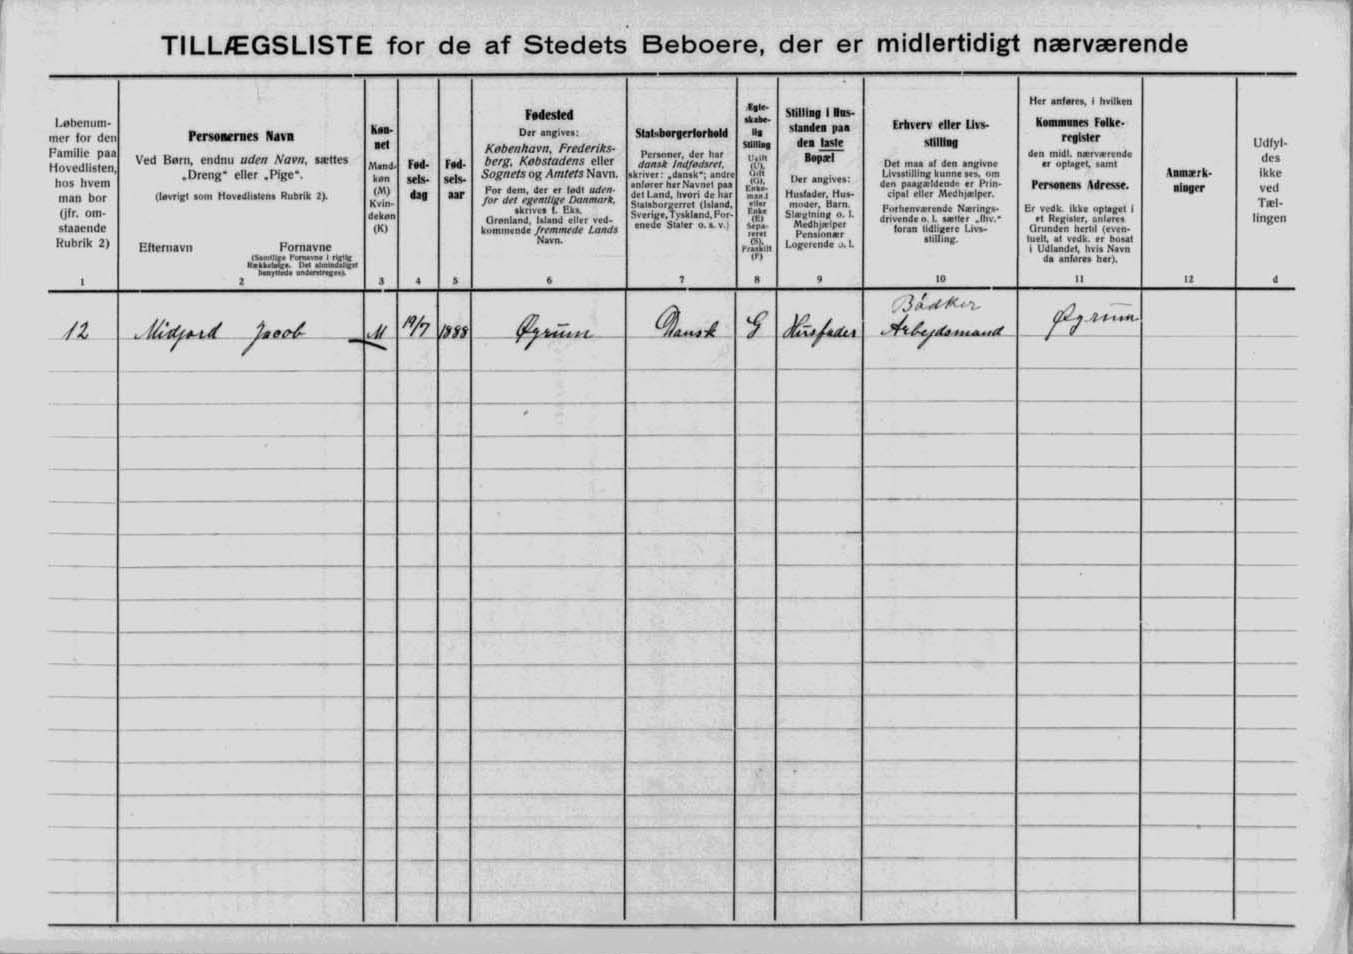 TILLÆGSLISTE for de af Stedets Beboere, der er midlertidigt nærværende
Løbenum-
mer for den
Familie paa
Hovedlisten,
hos hvem
man bor
(jfr. om-
staaende
Rubrik 2)
1
Personernes Navn
Ved Børn, endnu uden Navn, sættes
„Dreng“ eller „Pige“.
(Iøvrigt som Hovedlistens Rubrik 2).
Efternavn Fornavne
(Samtlige Fornavne i rigtig
Rækkefølge. Det almindeligst
benyttede understreges).
2
Køn-
net
Mand-
køn
(M)
Kvin-
dekøn
(K)
3
Fød-
sels-
dag
4
Fød-
sels-
aar
5
Fødested
Der angives:
København, Frederiks-
berg, Købstadens eller
Sognets og Amtets Navn.
For dem, der er født uden-
for det egentlige Danmark,
skrives f. Eks.
Grønland, Island eller ved-
kommende fremmede Lands
Navn.
6
Statsborgerforhold
Personer, der har
dansk Indfødsret,
skriver: „dansk“; andre
anfører her Navnet paa
det Land, hvori de har
Statsborgerret (Island,
Sverige, Tyskland, For-
enede Stater o. s. v.)
7
Ægte-
skabe-
lig
Stilling
Ugift
(U),
Gift
(G),
Enke-
mand
eller
Enke
(E)
Sepa-
reret
(S),
Fraskilt
(F)
8
Stilling i Hus-
standen paa
den faste
Bopæl
Der angives:
Husfader, Hus-
moder, Barn,
Slægtning o. l.
Medhjælper
Pensionær
Logerende o. l.
9
Erhverv eller Livs-
stilling
Det maa af den angivne
Livsstilling kunne ses, om
den paagældende er Prin-
cipal eller Medhjælper.
Forhenværende Nærings-
drivende o. l. sætter „fhv.“
foran tidligere Livs-
stilling.
10
Her anføres, i hvilken
Kommunes Folke-
register
den midl. nærværende
er optaget, samt
Personens Adresse.
Er vedk. ikke optaget i
et Register, anføres
Grunden hertil (even-
tuelt, at vedk. er bosat
i Udlandet, hvis Navn
da anføres her).
11
Anmærk-
ninger
12
Udfyl-
des
ikke
ved
Tæl-
lingen
d
Bødker
12 Midjord Jacob M 19/7 1888 Øgrum Dansk G Husfader Arbejdsmand Øgrum